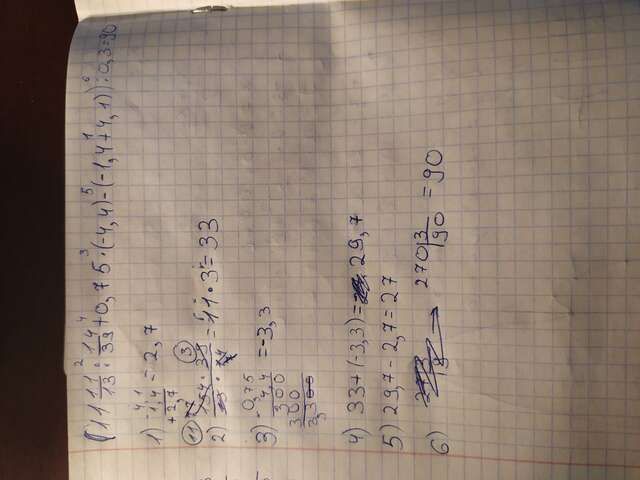 (11 11/13 : 14/39 + 0,75 · (-4,4) - (-1,4 + 4,1)) : 0,3 = 90
1) -1,4 + 4,1 = 2,7
2) 154/13 · 39/14 = 11 · 3 = 33
3) 0,75 · 4,4 = -3,3
300
300
3,300
4) 33 + (-3,3) = 29,7
5) 29,7 - 2,7 = 27
6) 270 | 3 90 = 90